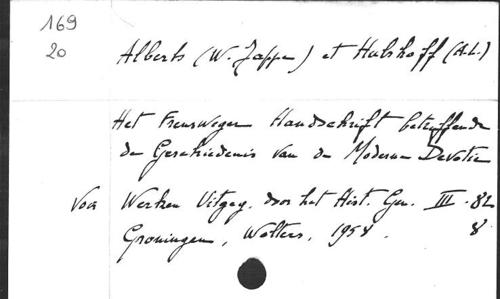 169
20
Alberts (W. Jappe) et Hulshoff (A.L.)
Het Frensweger Handschrift betreffende
de Geschiedenis van de Moderne Devotie
Voor Werken Uitgeg. door het Hist. Gen. III - 82
Groningen, Wolters, 1958. 8